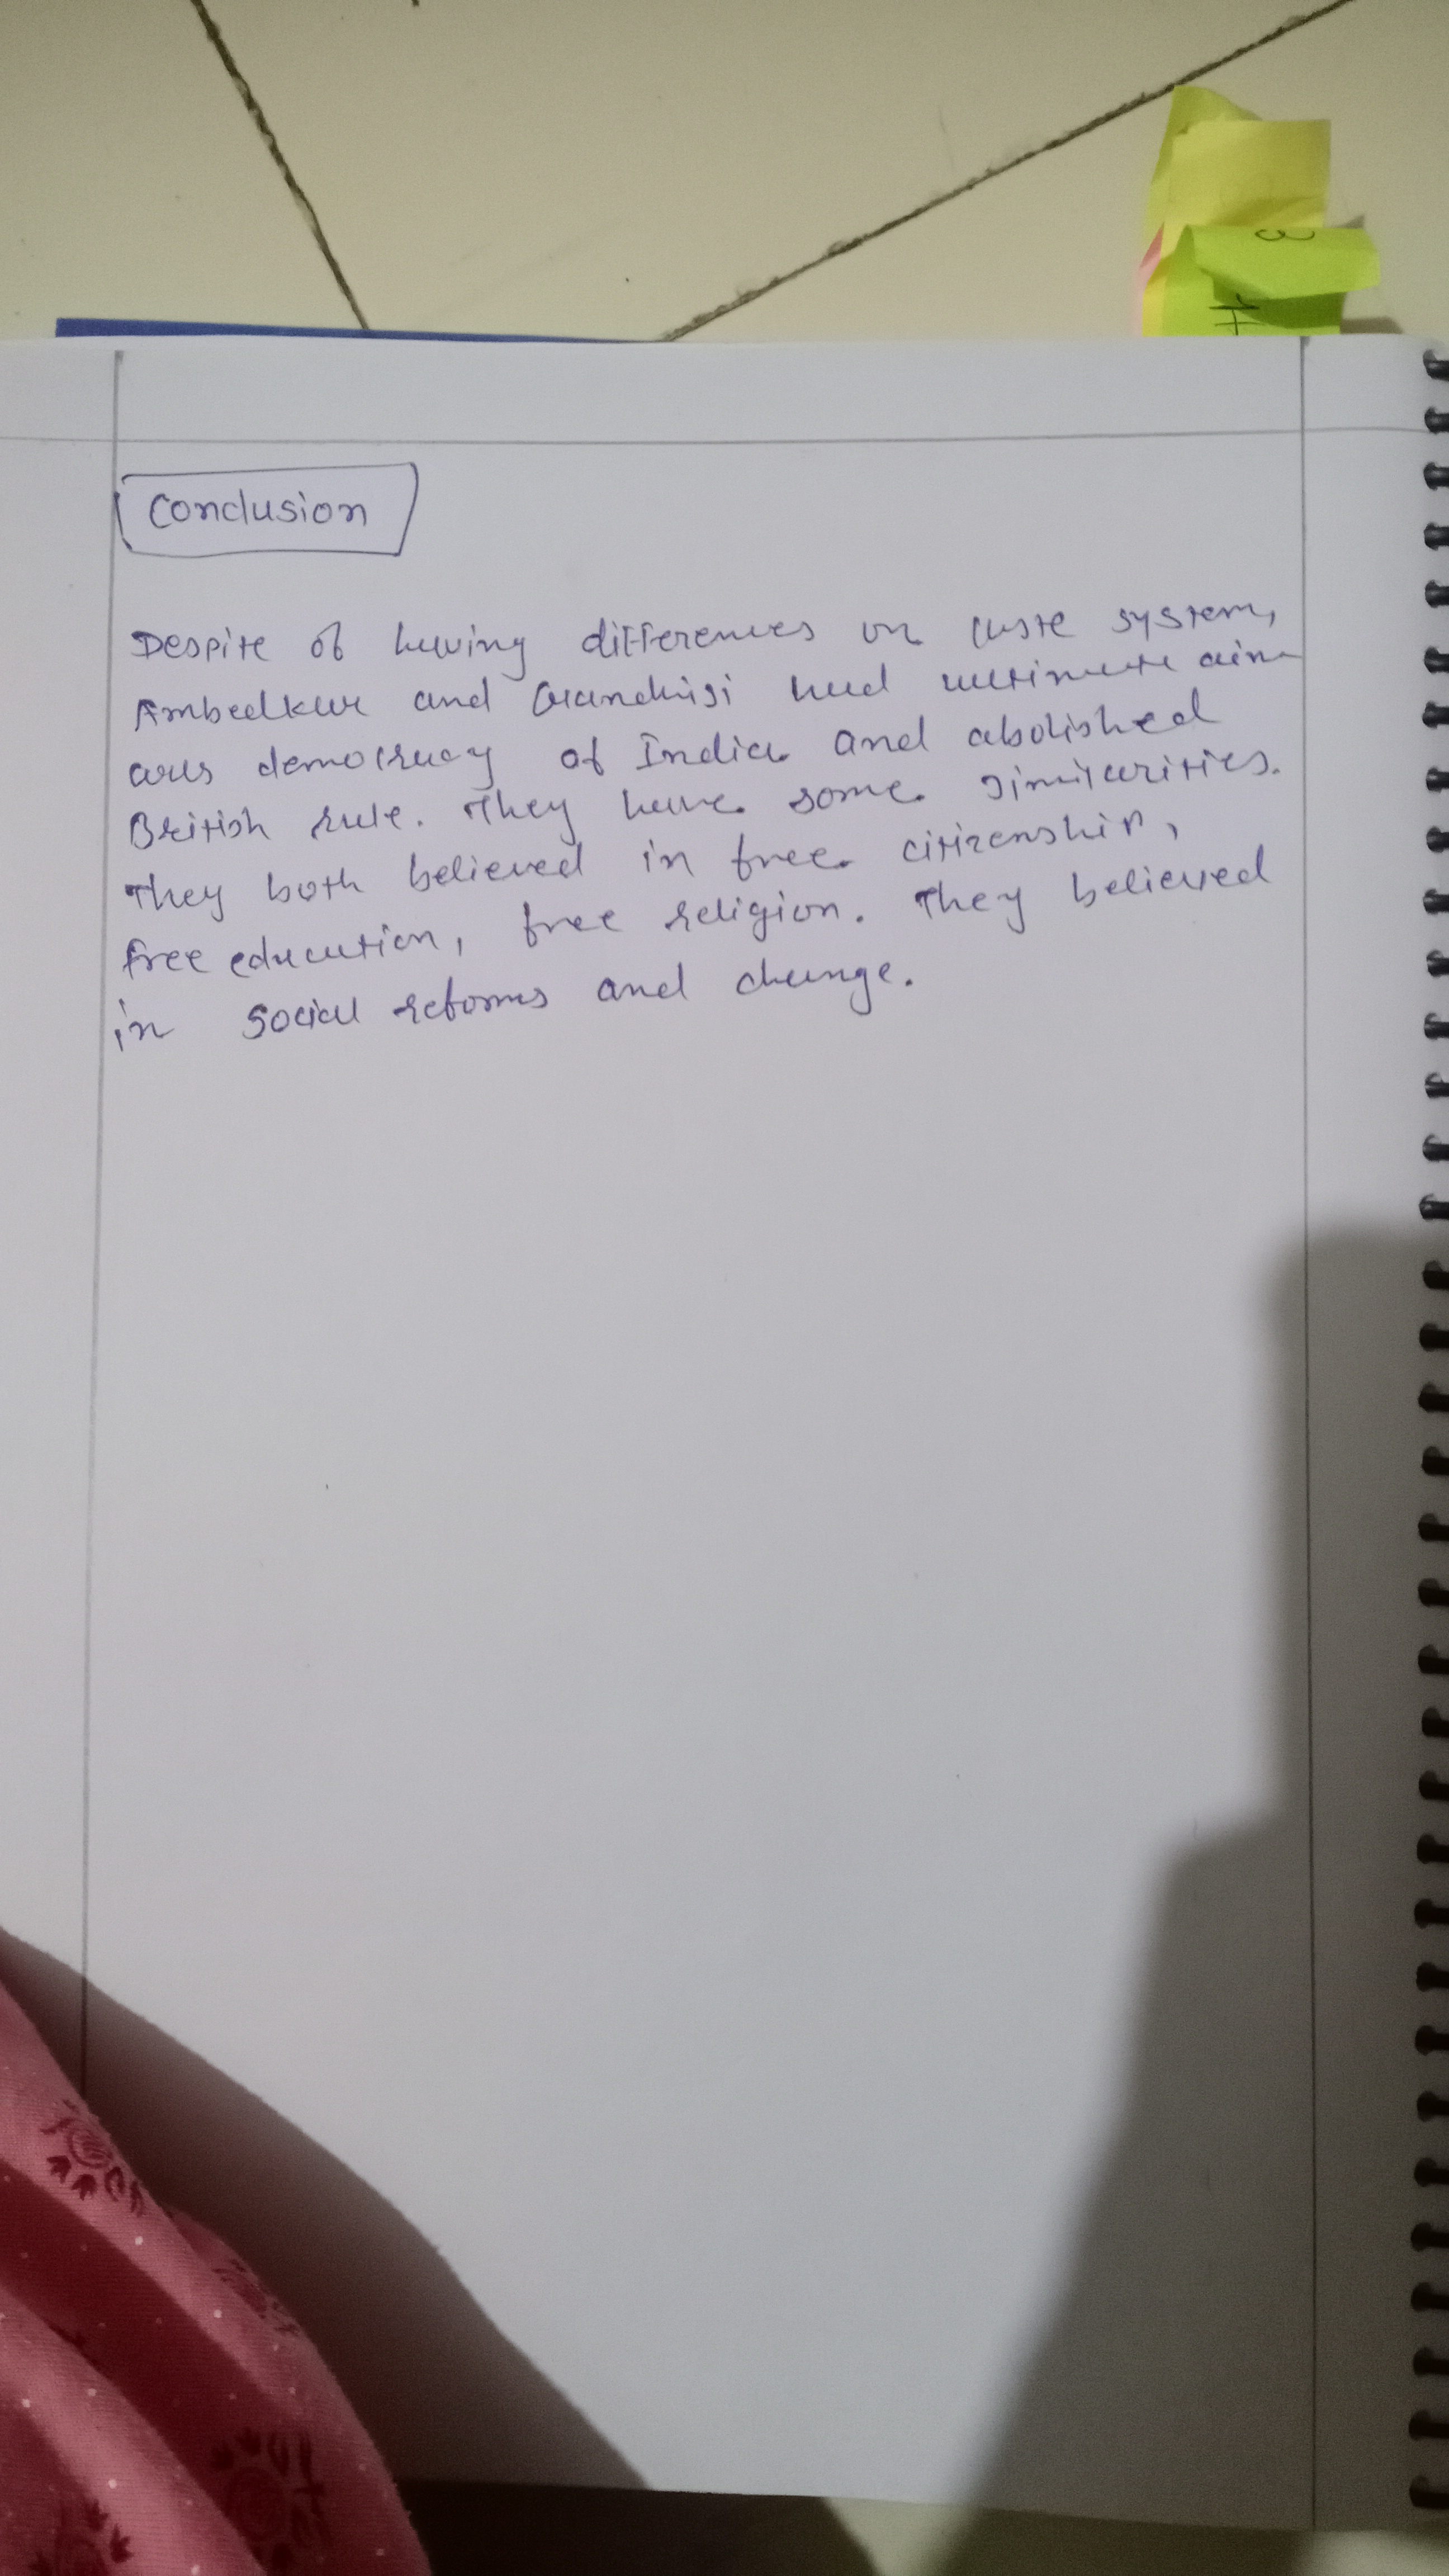 Conclusion
Despite of having differences on caste system,
Ambedkar and Gandhiji had ultimate aim
was democracy of India and abolished
British rule. They have some similarities.
They both believed in free citizenship,
free education, free religion. They believed
in social reforms and change.